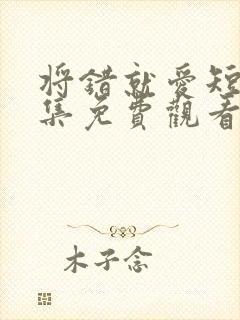 将錯就愛短
集免費觀看
木子念